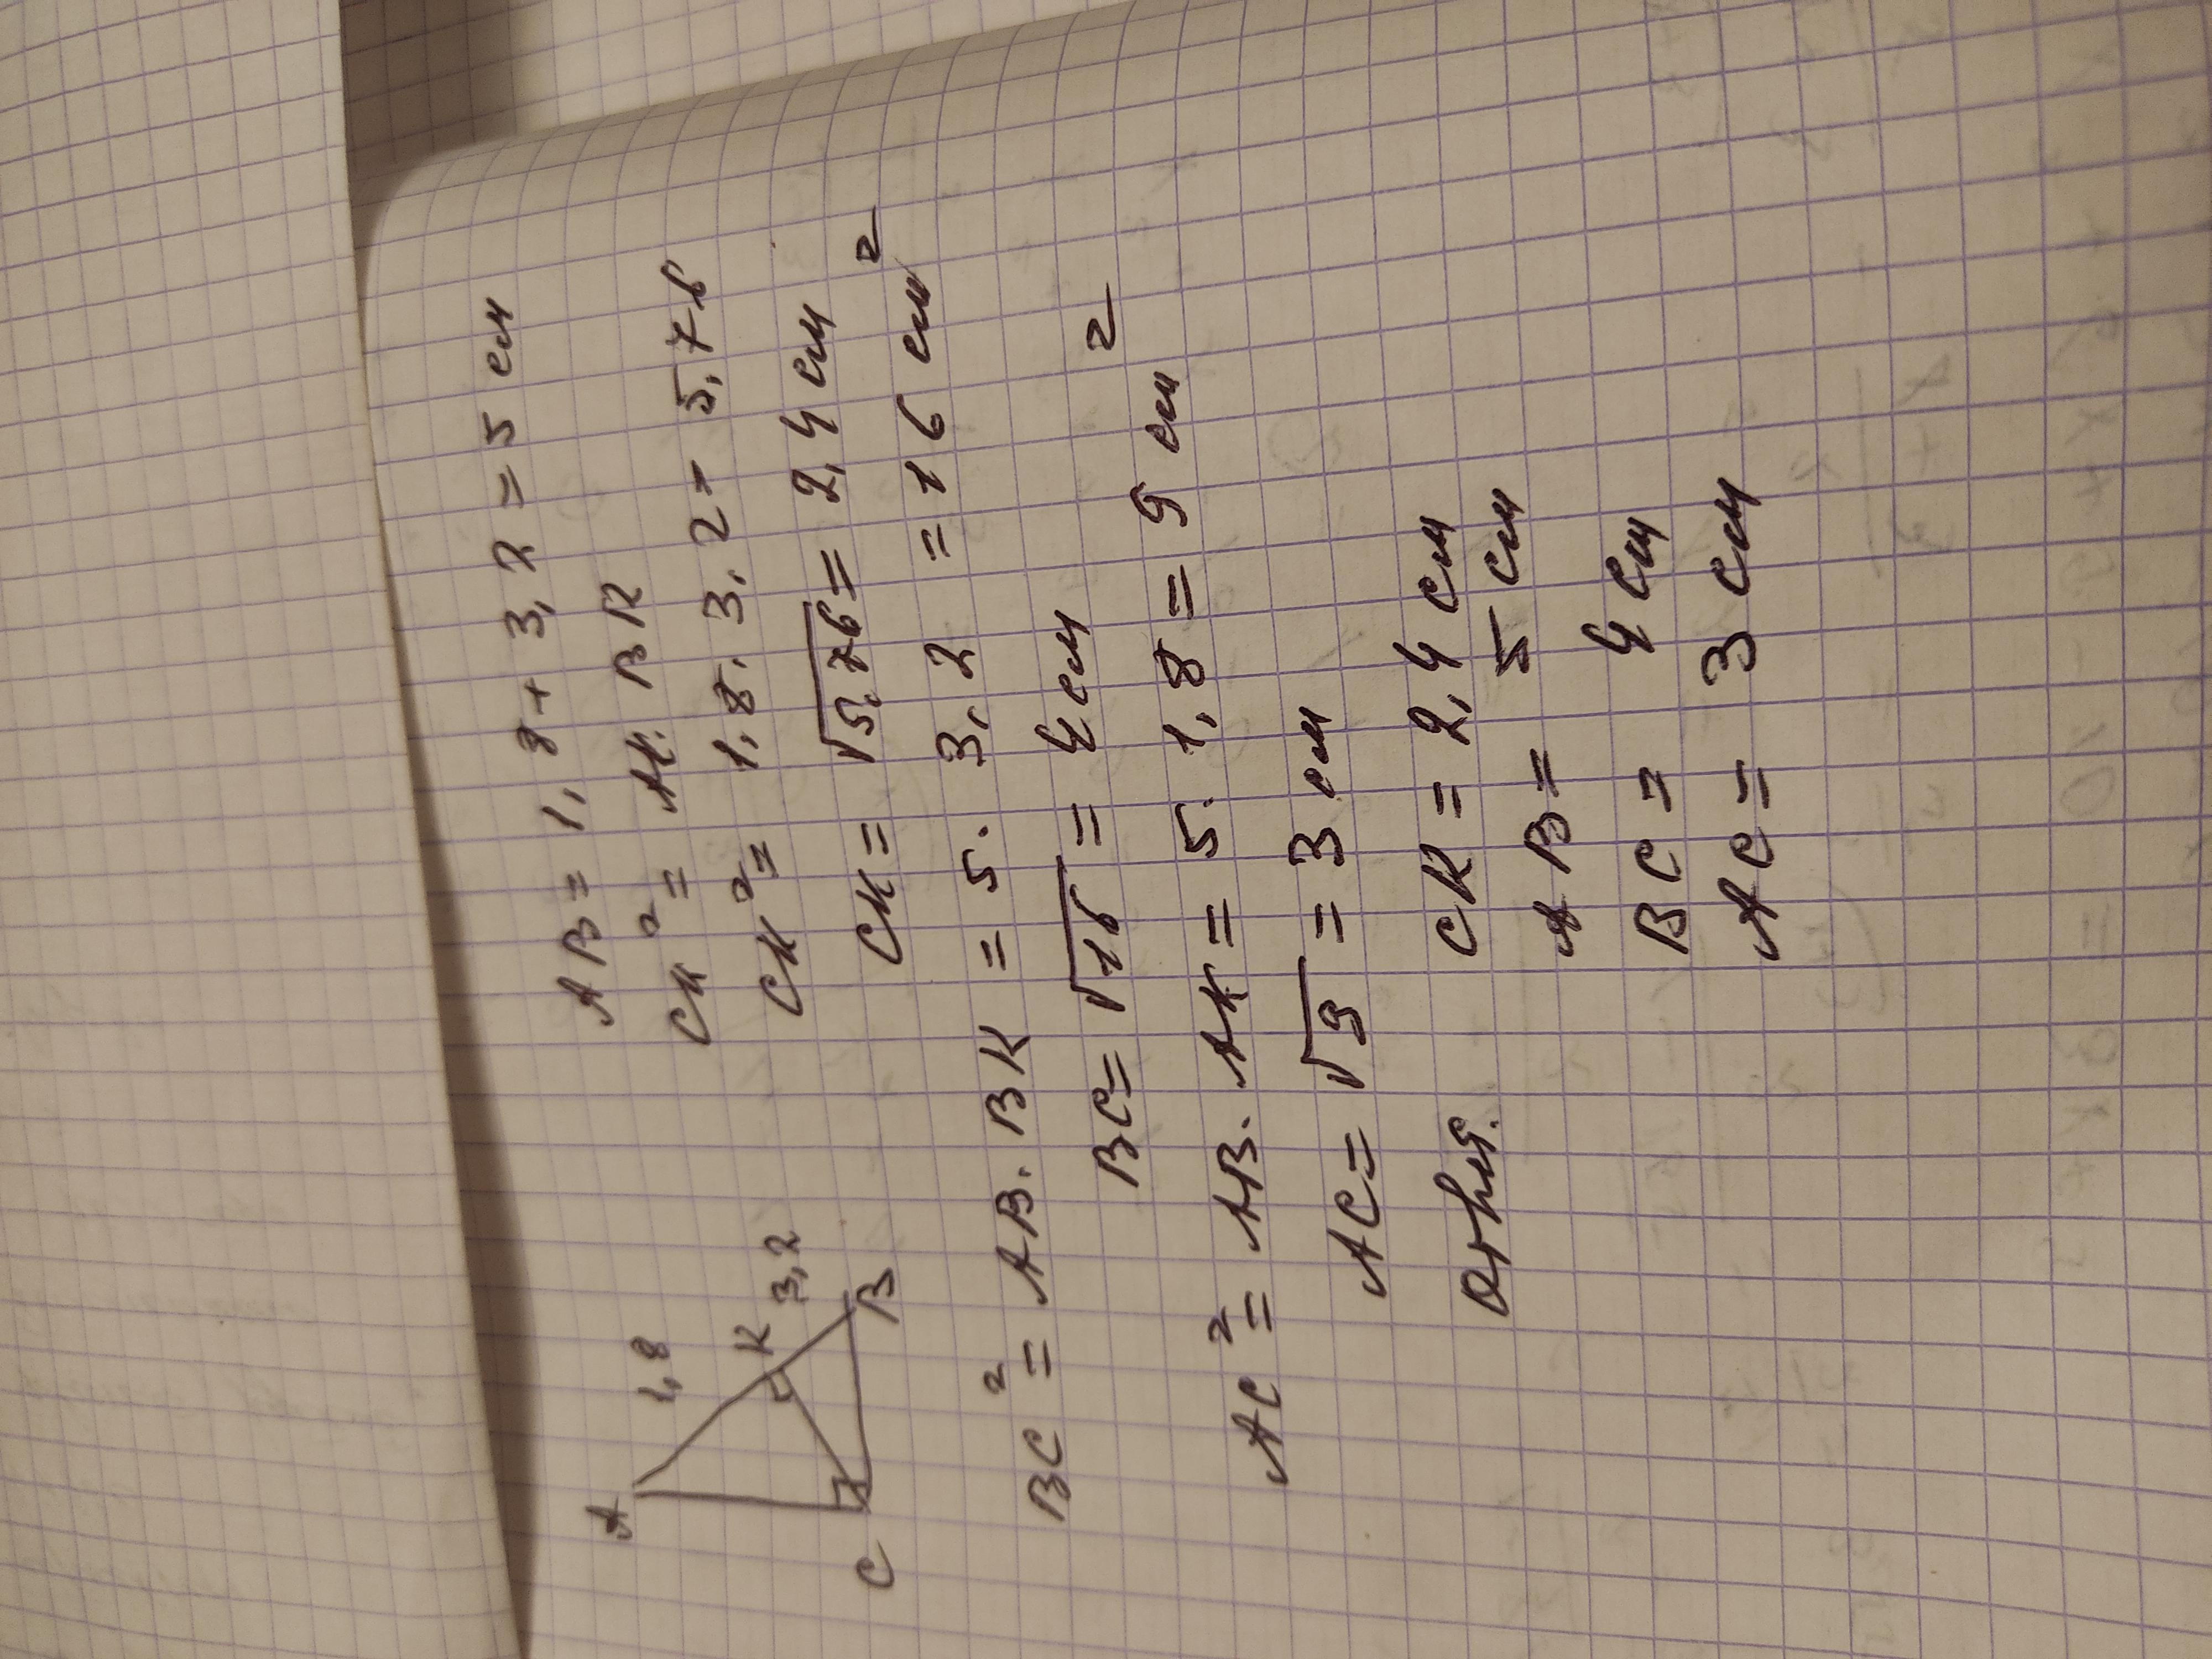 AB = 1,8 + 3,2 = 5 см
CK² = AK · BK
CK² = 1,8 · 3,2 = 5,76
CK = √5,76 = 2,4 см
A
1,8
K
3,2
C
B
BC² = AB · BK = 5 · 3,2 = 16 см²
BC = √16 = 4 см
AC² = AB · AK = 5 · 1,8 = 9 см²
AC = √9 = 3 см
CK = 2,4 см
AB = 5 см
BC = 4 см
AC = 3 см